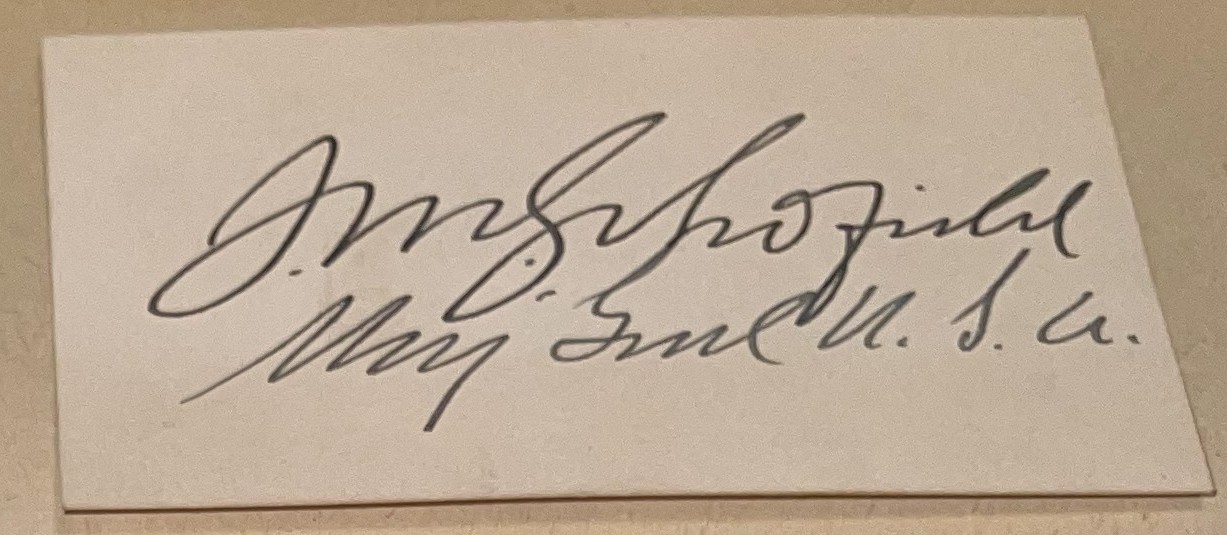 J. M. Schofield
Maj Genl U. S. A.